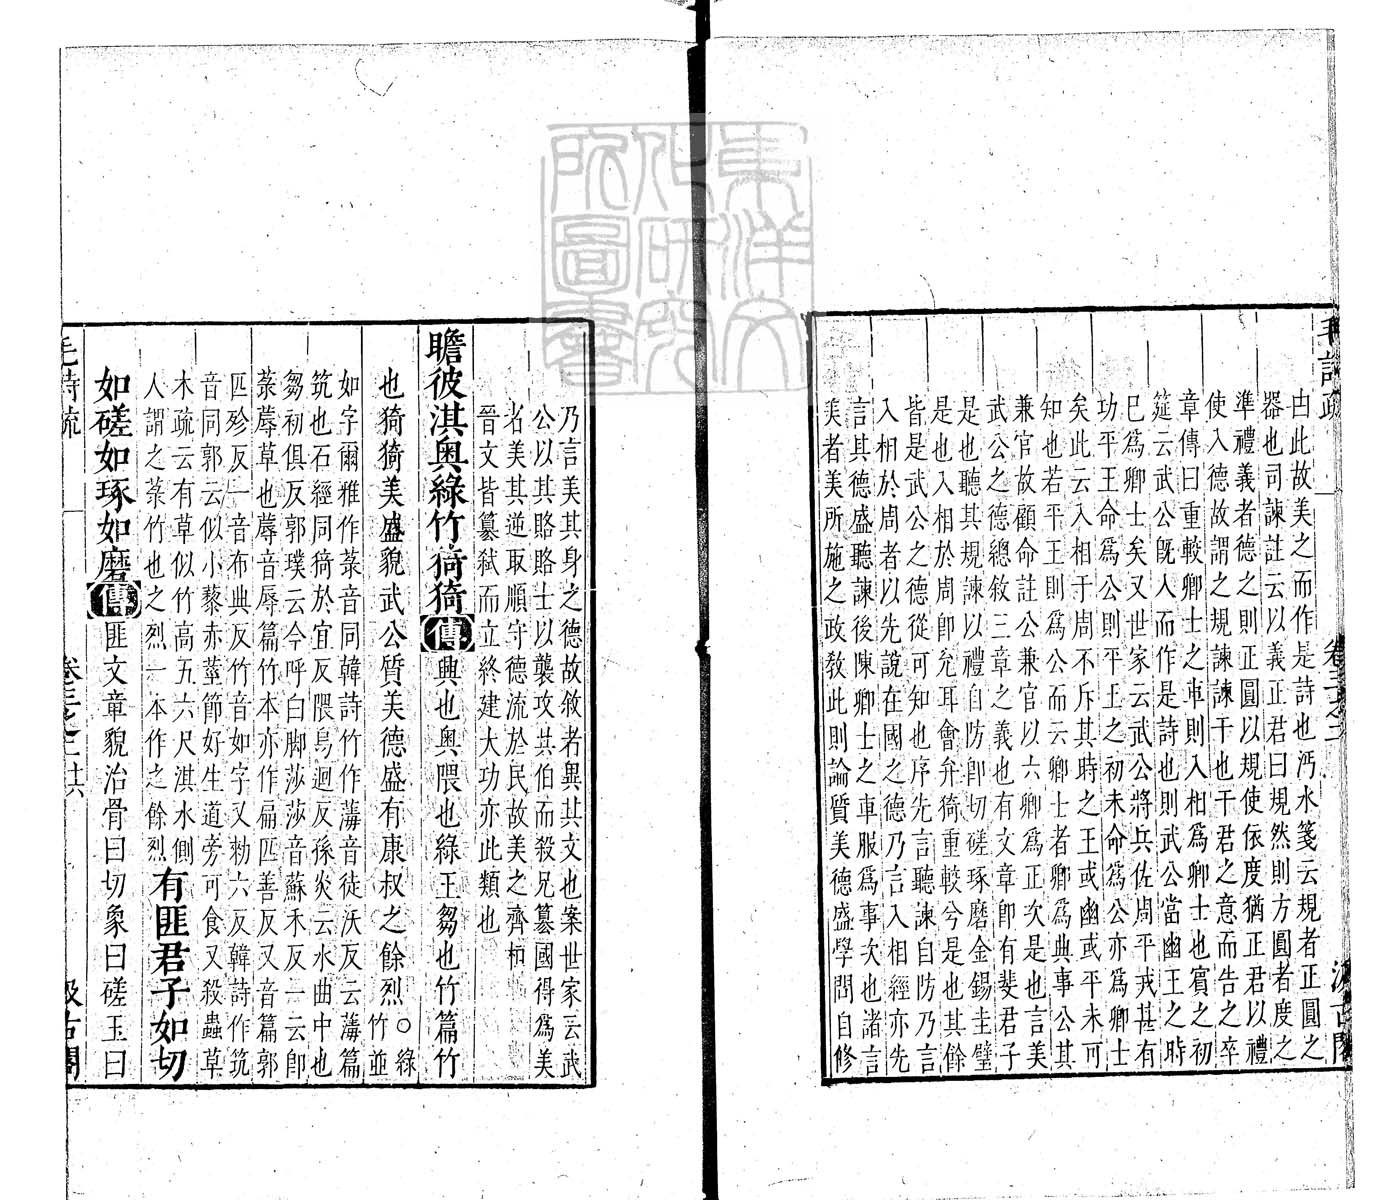 毛詩疏 卷三之二 汲古閣
由此故美之而作是詩也沔水箋云規者正圓之
器也司諫註云以義正君曰規然則方圓者度之
準禮義者德之則正圓以規使依度猶正君以禮
使入德故謂之規諫諫干也干君之意而告之卒
章傳曰重較卿士之車則入相為卿士也賓之初
筵云武公旣入而作是詩也則武公當幽王之時
巳為卿士矣又世家云武公將兵佐周平戎甚有
功平王命為公則平王之初未命為公亦為卿士
矣此云入相于周不斥其時之王或幽或平未可
知也若平王則為公而云卿士者卿為典事公其
兼官故顧命註公兼官以六卿為正次是也言美
武公之德總敘三章之義也有文章卽有斐君子
是也聽其規諫以禮自防卽切磋琢磨金錫圭璧
是也入相於周卽充耳會弁猗重較兮是也其餘
皆是武公之德從可知也序先言聽諫自防乃言
入相於周者以先說在國之德乃言入相經亦先
言其德盛聽諫後陳卿士之車服為事次也諸言
美者美所施之政敎此則論質美德盛學問自修
乃言美其身之德故敘者異其文也案世家云武
公以其賂賂士以襲攻共伯而殺兄簒國得為美
名美其逆取順守德流於民故美之齊桓
晉文皆簒弑而立終建大功亦此類也
瞻彼淇奥綠竹猗猗傳興也奥隈也綠王芻也竹篇竹
也猗猗美盛貌武公質美德盛有康叔之餘烈○綠竹並
如字爾雅作菉音同韓詩竹作薄音徒沃反云薄篇
筑也石經同猗於宜反隈烏迴反孫炎云水曲中也
芻初俱反郭璞云今呼白脚莎莎音蘇禾反一云卽
菉蓐草也蓐音辱篇竹本亦作扁匹善反又音篇郭
匹殄反一音布典反竹音如字又勑六反韓詩作筑
音同郭云似小藜赤莖節好生道旁可食又殺蟲草
木疏云有草似竹高五六尺淇水側
人謂之菉竹也之烈一本作之餘烈有匪君子如切
如磋如琢如磨傳匪文章貌治骨曰切象曰磋玉曰
毛詩疏 卷三之二 廿六 汲古閣
東洋文化研究所圖書